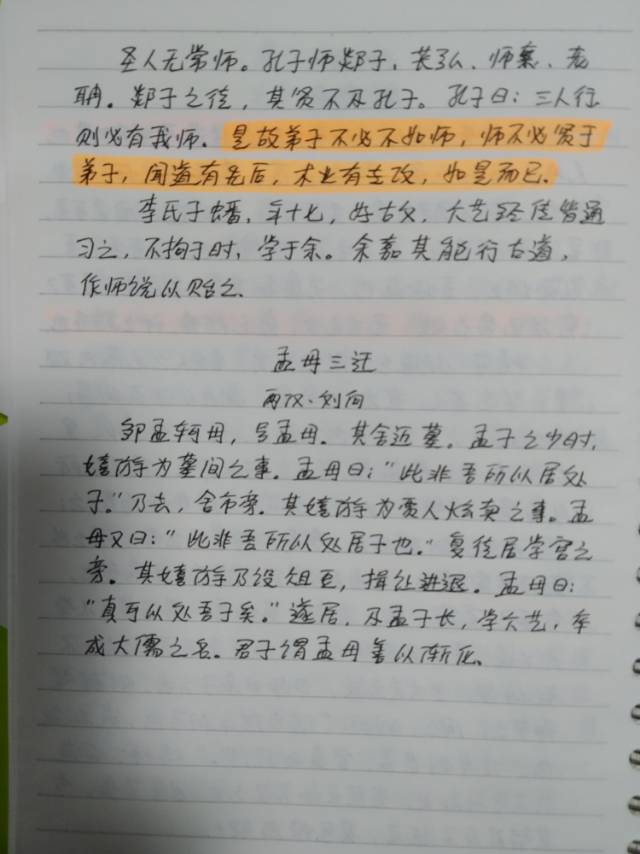 圣人无常师。孔子师郯子、苌弘、师襄、老
聃。郯子之徒，其贤不及孔子。孔子曰：三人行
则必有我师。是故弟子不必不如师，师不必贤于
弟子，闻道有先后，术业有专攻，如是而已。
李氏子蟠，年十七，好古文，六艺经传皆通
习之，不拘于时，学于余。余嘉其能行古道，
作师说以贻之。
孟母三迁
两汉·刘向
邹孟轲母，号孟母。其舍近墓。孟子之少时，
嬉游为墓间之事。孟母曰：“此非吾所以居处
子。”乃去，舍市旁。其嬉游为贾人炫卖之事。孟
母又曰：“此非吾所以处居子也。”复徙居学宫之
旁。其嬉游乃设俎豆，揖让进退。孟母曰：
“真可以处吾子矣。”遂居，及孟子长，学六艺，卒
成大儒之名。君子谓孟母善以渐化。